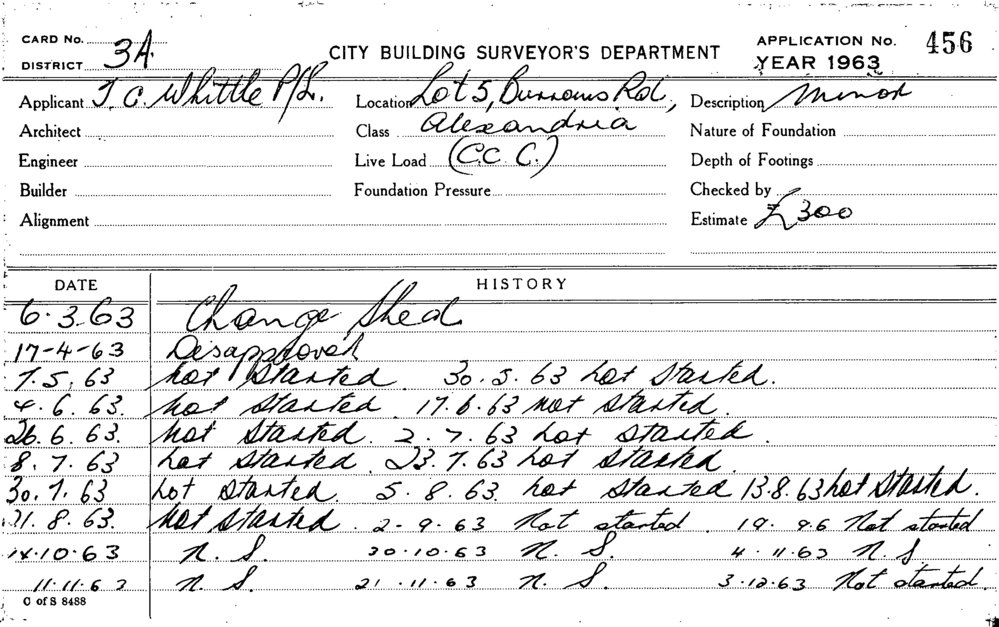 CARD No.
DISTRICT 3A.
CITY BUILDING SURVEYOR'S DEPARTMENT
APPLICATION No. 456
YEAR 1963
Applicant T. C. Whittle P/L.
Location Lot 5, Burrows Rd,
Description Minor
Architect
Class Alexandria
Nature of Foundation
Engineer
Live Load (C.C.C.)
Depth of Footings
Builder
Foundation Pressure
Checked by
Alignment
Estimate £300
DATE HISTORY
6.3.63 Change Shed.
17-4-63 Disapproved
7.5.63 not started. 30.5.63 not started.
4.6.63. not started. 17.6.63 not started.
26.6.63. not started. 2.7.63 not started.
8.7.63 not started. 23.7.63 not started.
30.7.63 not started. 5.8.63. not started 13.8.63 not started.
21.8.63. not started. 2-9.63 Not started 19. 9.6 Not started
14.10.63 N. S. 30.10.63 N. S. 4.11.63 N. S.
11.11.63 N. S. 21.11.63 N. S. 3.12.63 Not started.
C of S 8488